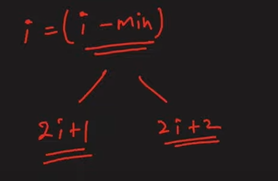 i = (i - min)
2i+1 2i+2